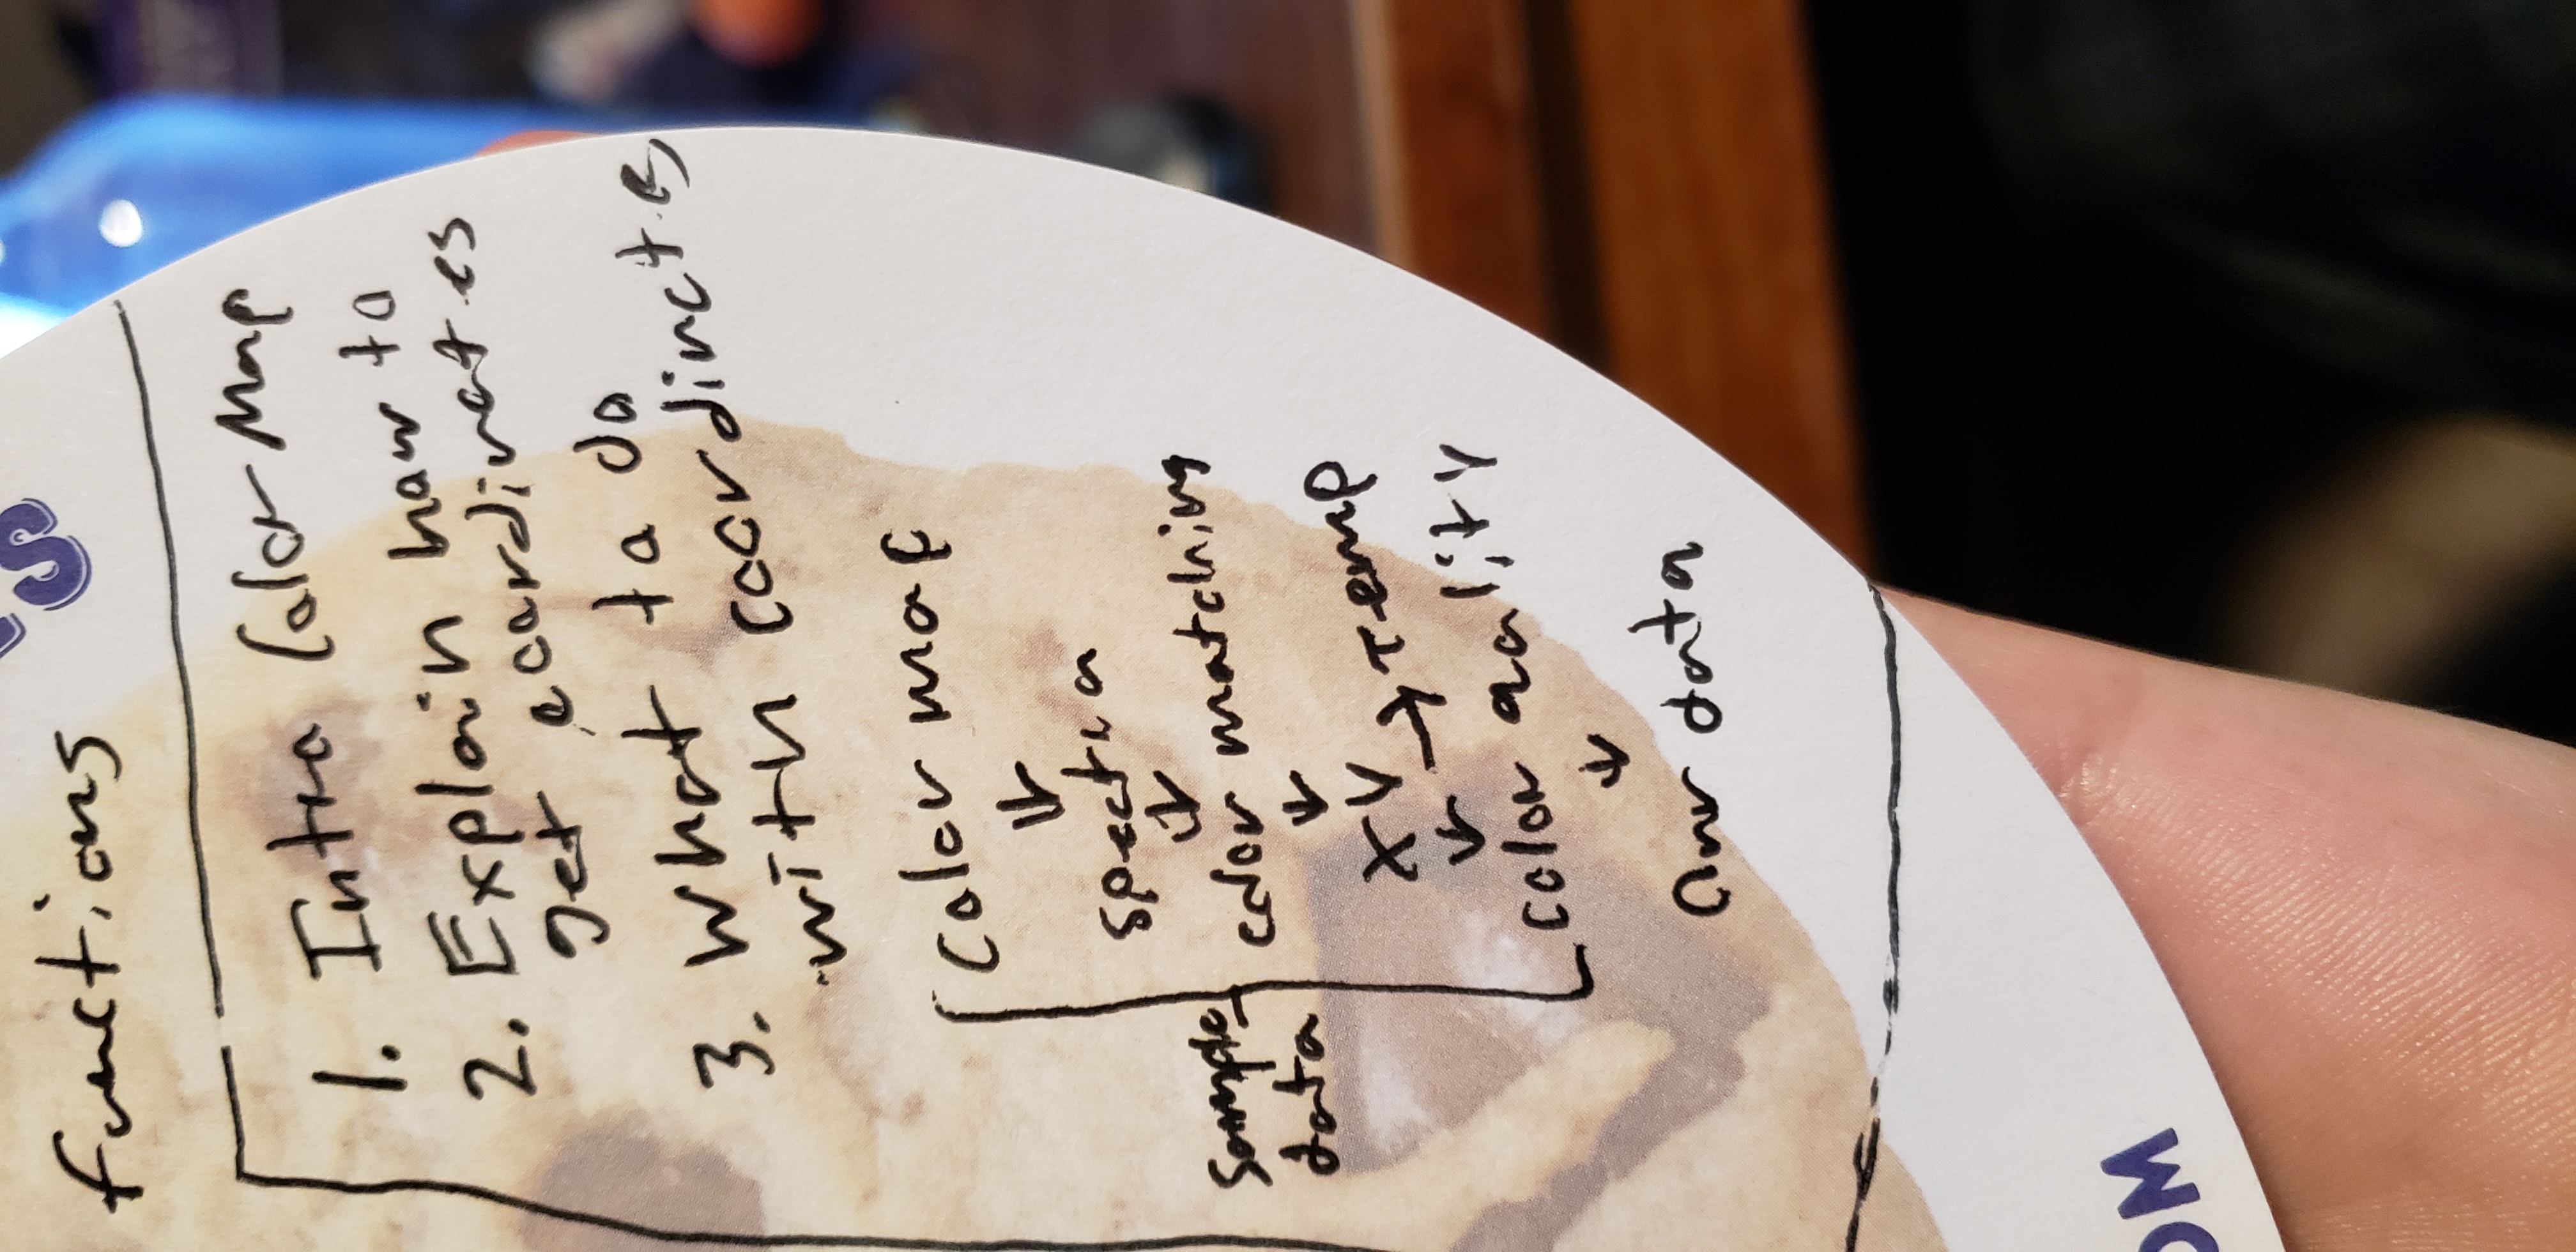 S
functions
1. Intro Color Map
2. Explain how to
get coordinates
3. What to do
with coordinates
Color map
↓
spectra
↓
color matching
Sample
data
↓
XY → Temp
↓
color qality
↓
Our data
OM